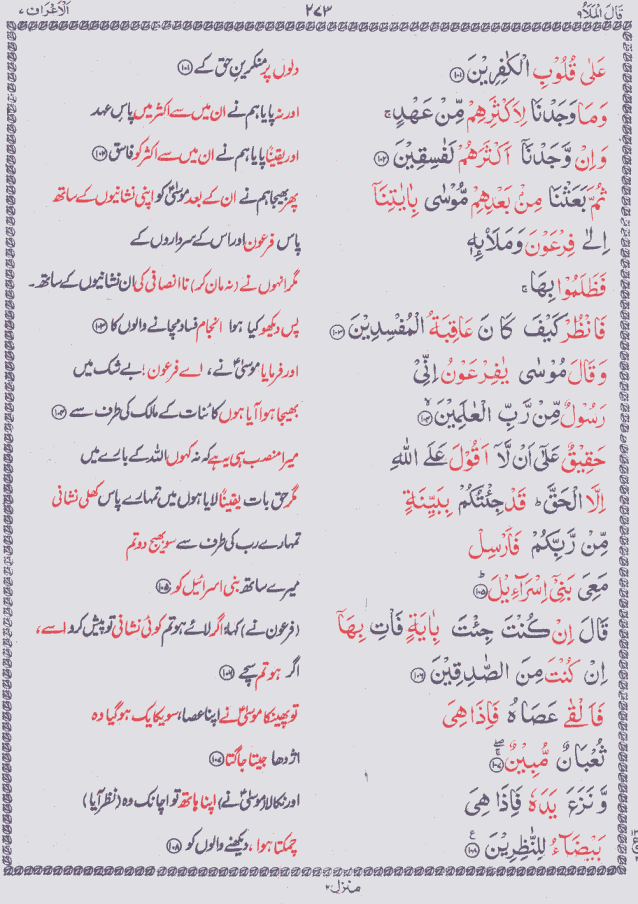 قَالَ الْمَلَاُ ٩ ٢٧٣ اَلْاَعْرَاف ٧
عَلٰى قُلُوْبِ الْكٰفِرِيْنَ ﴿١٠١﴾ دلوں پر منکرینِ حق کے ﴿١٠١﴾
وَمَا وَجَدْنَا لِاَكْثَرِهِمْ مِّنْ عَهْدٍ ۚ اور نہ پایا ہم نے ان میں سے اکثر میں پاسِ عہد
وَاِنْ وَّجَدْنَاۤ اَكْثَرَهُمْ لَفٰسِقِيْنَ ﴿١٠٢﴾ اور یقیناً پایا ہم نے ان میں سے اکثر کو فاسق ﴿١٠٢﴾
ثُمَّ بَعَثْنَا مِنْۢ بَعْدِهِمْ مُّوْسٰى بِاٰيٰتِنَاۤ پھر بھیجا ہم نے ان کے بعد موسٰیؑ کو اپنی نشانیوں کے ساتھ
اِلٰى فِرْعَوْنَ وَمَلَا۟ئِهٖ پاس فرعون اور اس کے سرداروں کے
فَظَلَمُوْا بِهَا ۚ مگر انہوں نے (نہ مان کر) نا انصافی کی ان نشانیوں کے ساتھ۔
فَانْظُرْ كَيْفَ كَانَ عَاقِبَةُ الْمُفْسِدِيْنَ ﴿١٠٣﴾ پس دیکھو کیا ہوا انجام فساد مچانے والوں کا ﴿١٠٣﴾
وَقَالَ مُوْسٰى يٰفِرْعَوْنُ اِنِّىْ اور فرمایا موسٰیؑ نے، اے فرعون! بے شک میں
رَسُوْلٌ مِّنْ رَّبِّ الْعٰلَمِيْنَ ﴿١٠٤﴾ بھیجا ہوا آیا ہوں کائنات کے مالک کی طرف سے ﴿١٠٤﴾
حَقِيْقٌ عَلٰٓى اَنْ لَّاۤ اَقُوْلَ عَلَى اللّٰهِ میرا منصب ہی یہ ہے کہ نہ کہوں اللہ کے بارے میں
اِلَّا الْحَقَّ ؕ قَدْ جِئْتُكُمْ بِبَيِّنَةٍ مگر حق بات یقیناً لایا ہوں میں تمہارے پاس کھلی نشانی
مِّنْ رَّبِّكُمْ فَاَرْسِلْ تمہارے رب کی طرف سے سو بھیج دو تم
مَعِىَ بَنِىْۤ اِسْرَآءِيْلَ ﴿١٠٥﴾ؕ میرے ساتھ بنی اسرائیل کو ﴿١٠٥﴾
قَالَ اِنْ كُنْتَ جِئْتَ بِاٰيَةٍ فَاْتِ بِهَاۤ (فرعون نے) کہا! اگر لائے ہو تم کوئی نشانی تو پیش کرو اسے،
اِنْ كُنْتَ مِنَ الصّٰدِقِيْنَ ﴿١٠٦﴾ اگر ہو تم سچے ﴿١٠٦﴾
فَاَلْقٰى عَصَاهُ فَاِذَا هِىَ تو پھینکا موسٰیؑ نے اپنا عصا، سو یکایک ہو گیا وہ
ثُعْبَانٌ مُّبِيْنٌ ﴿١٠٧﴾ۚ اژدھا جیتا جاگتا ﴿١٠٧﴾
وَّنَزَعَ يَدَهٗ فَاِذَا هِىَ اور نکالا (موسٰیؑ نے) اپنا ہاتھ تو اچانک وہ (نظر آیا)
بَيْضَآءُ لِلنّٰظِرِيْنَ ﴿١٠٨﴾ع چمکتا ہوا، دیکھنے والوں کو ﴿١٠٨﴾
منزل ٢